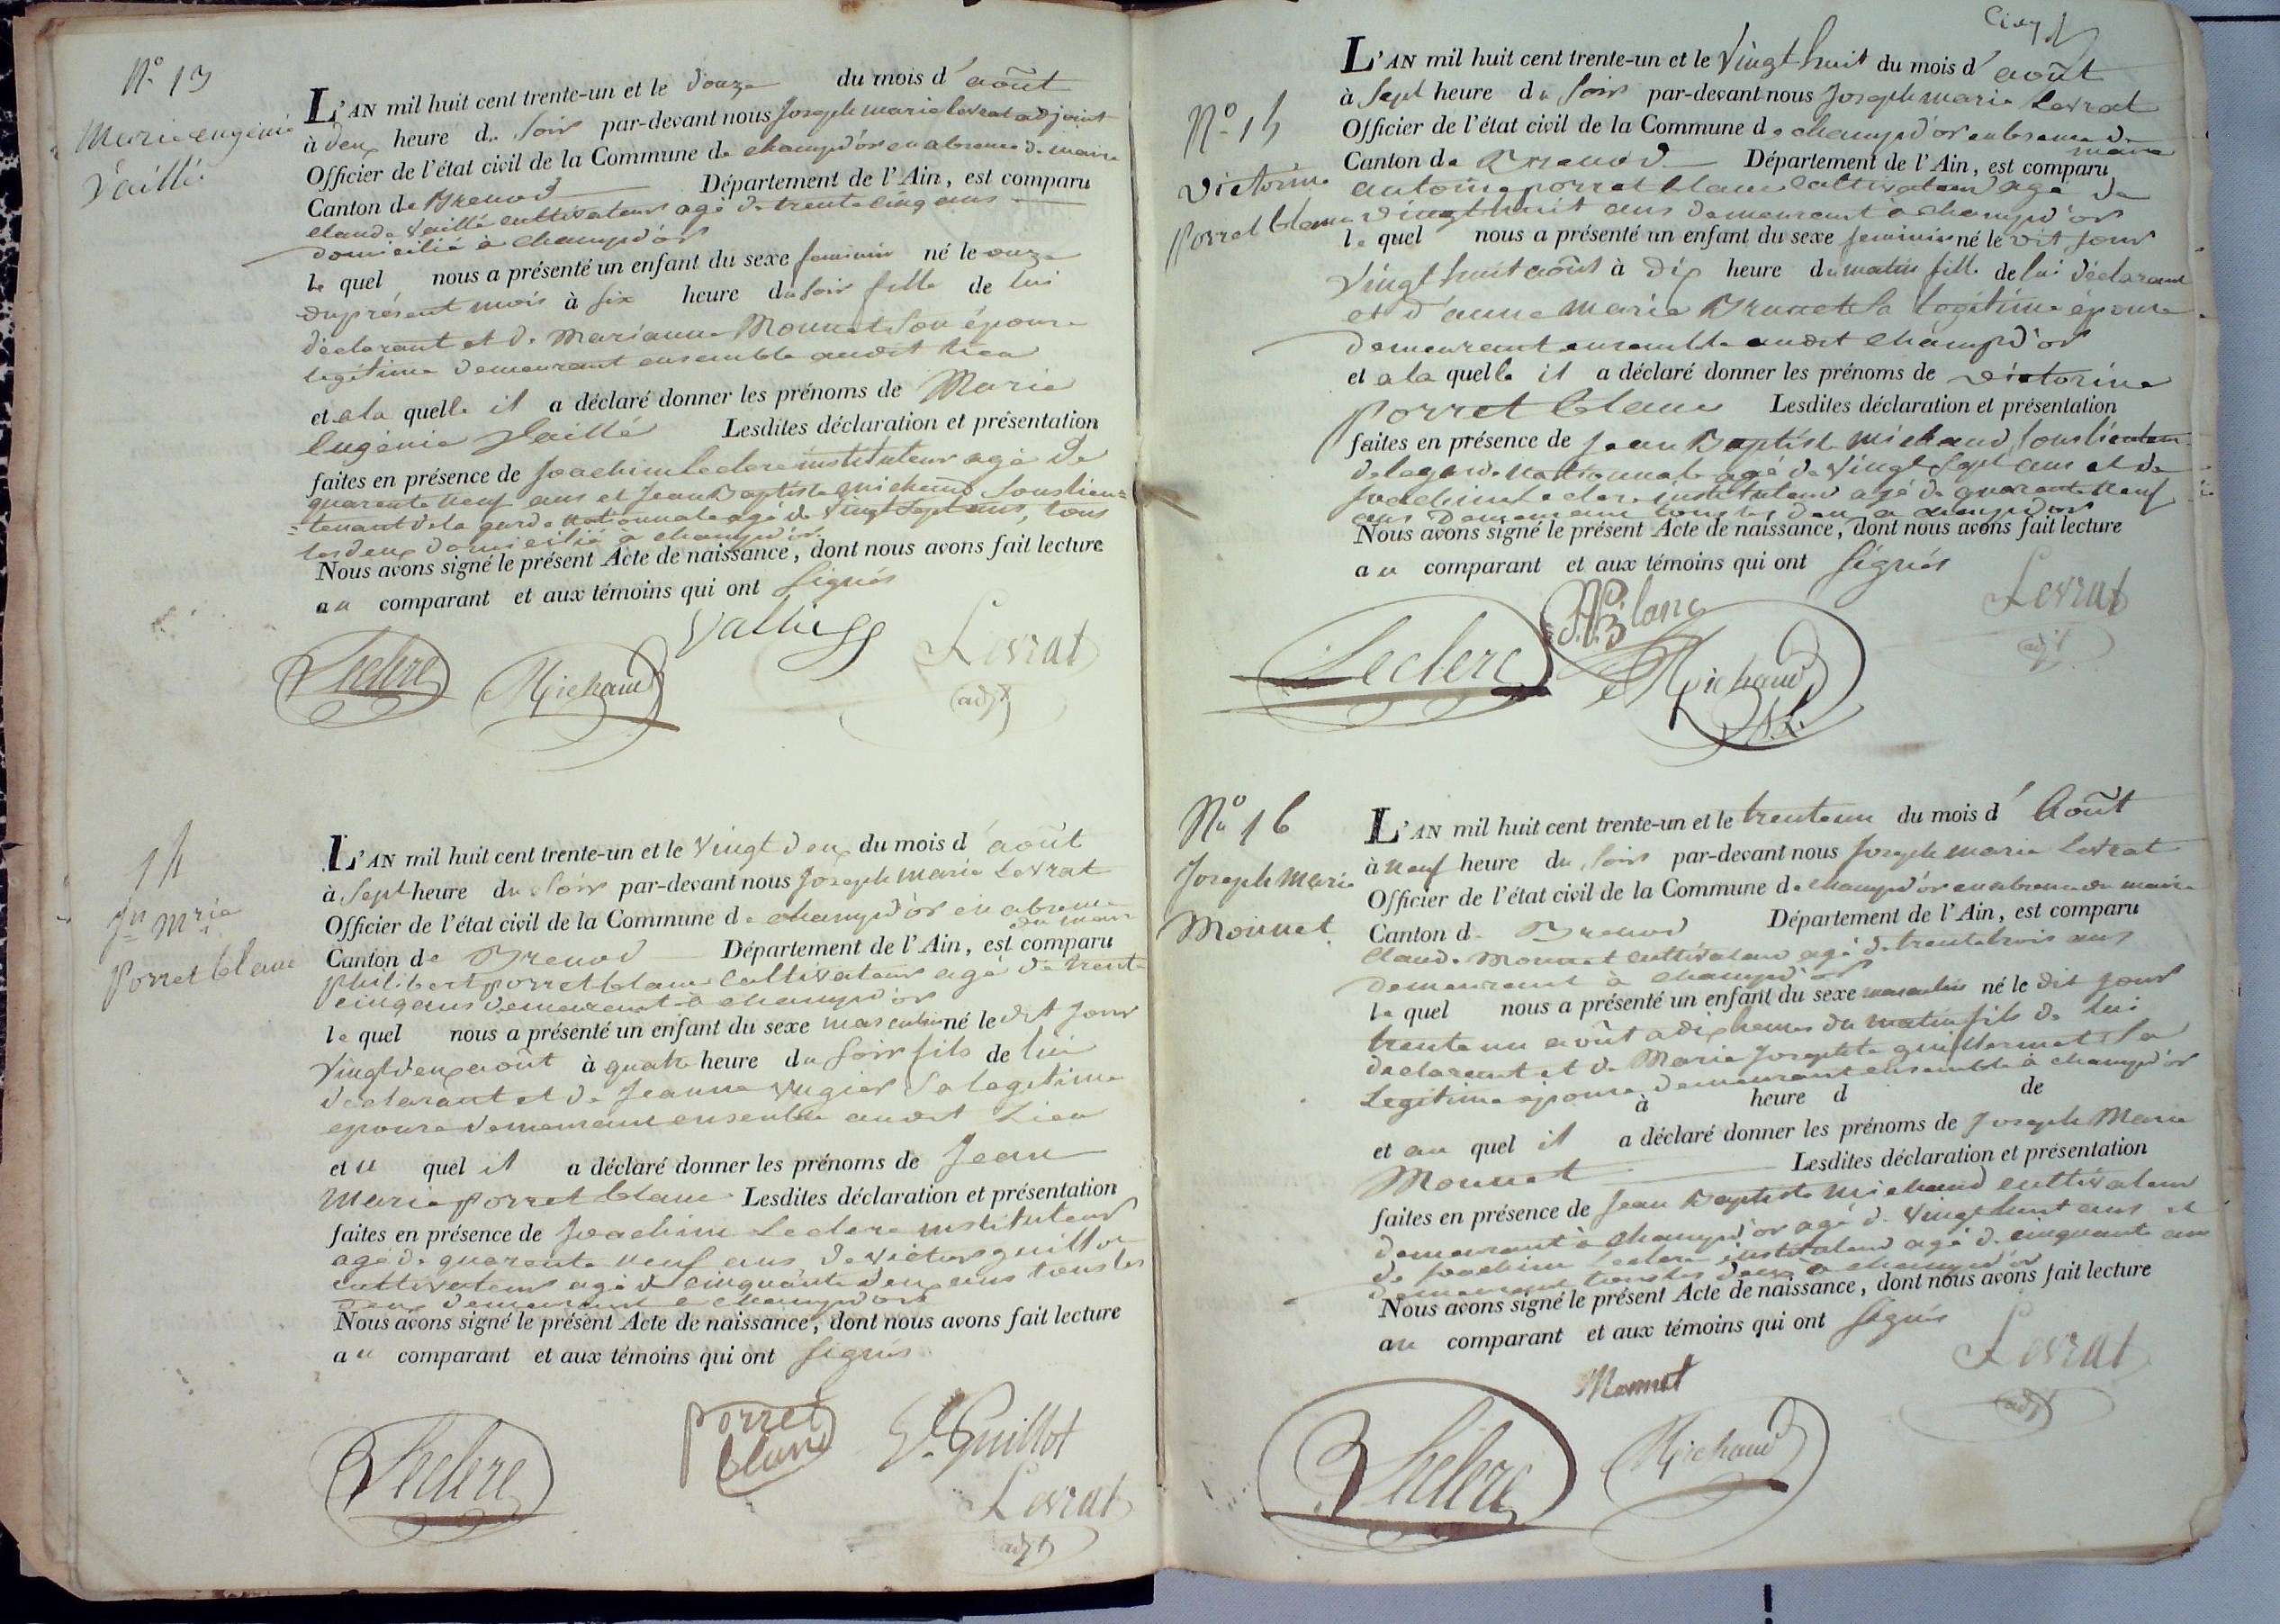 N° 13
Marie eugénie
Vaillé
L'AN mil huit cent trente-un et le douze du mois d'août
à deux heure du soir par-devant nous Joseph marie Levrat adjoint
Officier de l'état civil de la Commune de champd'or en absence du maire
Canton de Brenod Département de l'Ain, est comparu
claude Vaillé cultivateur agé de trente cinq ans
domicilié à champd'or
le quel nous a présenté un enfant du sexe feminin né le onze
du présent mois à six heure du soir fille de lui
déclarant et de Marianne Monnet son épouse
legitime demeurant ensemble audit lieu
et a la quelle il a déclaré donner les prénoms de Marie
Eugénie Vaillé Lesdites déclaration et présentation
faites en présence de Joachim Leclerc instituteur agé de
quarante neuf ans et Jean Baptiste Michaud souslieu=
=tenant de la garde nationnale agé de vingt sept ans, tous
les deux domicilié à champd'or
Nous avons signé le présent Acte de naissance, dont nous avons fait lecture
au comparant et aux témoins qui ont signés
Leclerc Michaud Levrat
adjt
14
Jn Mrie
Porret blanc
L'AN mil huit cent trente-un et le vingt deux du mois d'août
à sept heure du soir par-devant nous Joseph marie Levrat
Officier de l'état civil de la Commune de champd'or en absence
du maire
Canton de Brenod Département de l'Ain, est comparu
philibert porret blanc cultivateur agé de trente
cinq ans demeurant à champd'or
le quel nous a présenté un enfant du sexe masculin né le dit jour
vingt deux août à quatre heure du soir fils de lui
declarant et de Jeanne Sa legitime
epouse demeurant ensemble audit Lieu
et u quel il a déclaré donner les prénoms de Jean
Marie porret blanc Lesdites déclaration et présentation
faites en présence de Joachim Leclerc instituteur
agé de quarante neuf ans de victor guillot
cultivateur agé de cinquante deux ans tous les
deux demeurant a champd'or
Nous avons signé le présent Acte de naissance, dont nous avons fait lecture
au comparant et aux témoins qui ont signés
Leclerc porret blanc Guillot
Levrat
adjt
N° 15
victorine
porret blanc
L'AN mil huit cent trente-un et le vingt huit du mois d'août
à sept heure du soir par-devant nous Joseph marie Levrat
Officier de l'état civil de la Commune de champd'or en absence du
maire
Canton de Brenod Département de l'Ain, est comparu
antoine porret blanc cultivateur agé de
vingt huit ans demeurant à champd'or
le quel nous a présenté un enfant du sexe feminin né le dit jour
vingt huit août à dix heure du matin fille de lui déclarant
et d'anne marie Brunet sa legitime épouse
demeurant ensemble audit champd'or
et a la quelle il a déclaré donner les prénoms de victorine
porret blanc Lesdites déclaration et présentation
faites en présence de Jean Baptiste michaud, souslieutenan
de la garde nationnale agé de vingt sept ans et de
Joachim Leclerc instituteur agé de quarante neuf
ans demeurant tous les deux a champd'or
Nous avons signé le présent Acte de naissance, dont nous avons fait lecture
au comparant et aux témoins qui ont signés
Leclerc Blanc Michaud Levrat
adjt
N° 16
Joseph Marie
Monnet
L'AN mil huit cent trente-un et le trente un du mois d'Août
à neuf heure du soir par-devant nous Joseph marie Levrat
Officier de l'état civil de la Commune de champd'or en absence du maire
Canton d Brenod Département de l'Ain, est comparu
claude Monnet cultivateur agé de trente trois ans
demeurant à champd'or
le quel nous a présenté un enfant du sexe masculin né le dit jour
trente un août a dix heures du matin fils de lui
declarant et de Marie Josephte guillermet Sa
Legitime épouse demeurant ensemble à champd'or
à heure d de
et au quel il a déclaré donner les prénoms de Joseph Marie
Monnet Lesdites déclaration et présentation
faites en présence de Jean Baptiste Michaud cultivateur
demeurant à champd'or agé de vingt huit ans et
de Joachim Leclerc instituteur agé de cinquante ans
demeurant tous les deux à champd'or
Nous avons signé le présent Acte de naissance, dont nous avons fait lecture
au comparant et aux témoins qui ont signés
Monnet Levrat
adjt
Leclerc Michaud